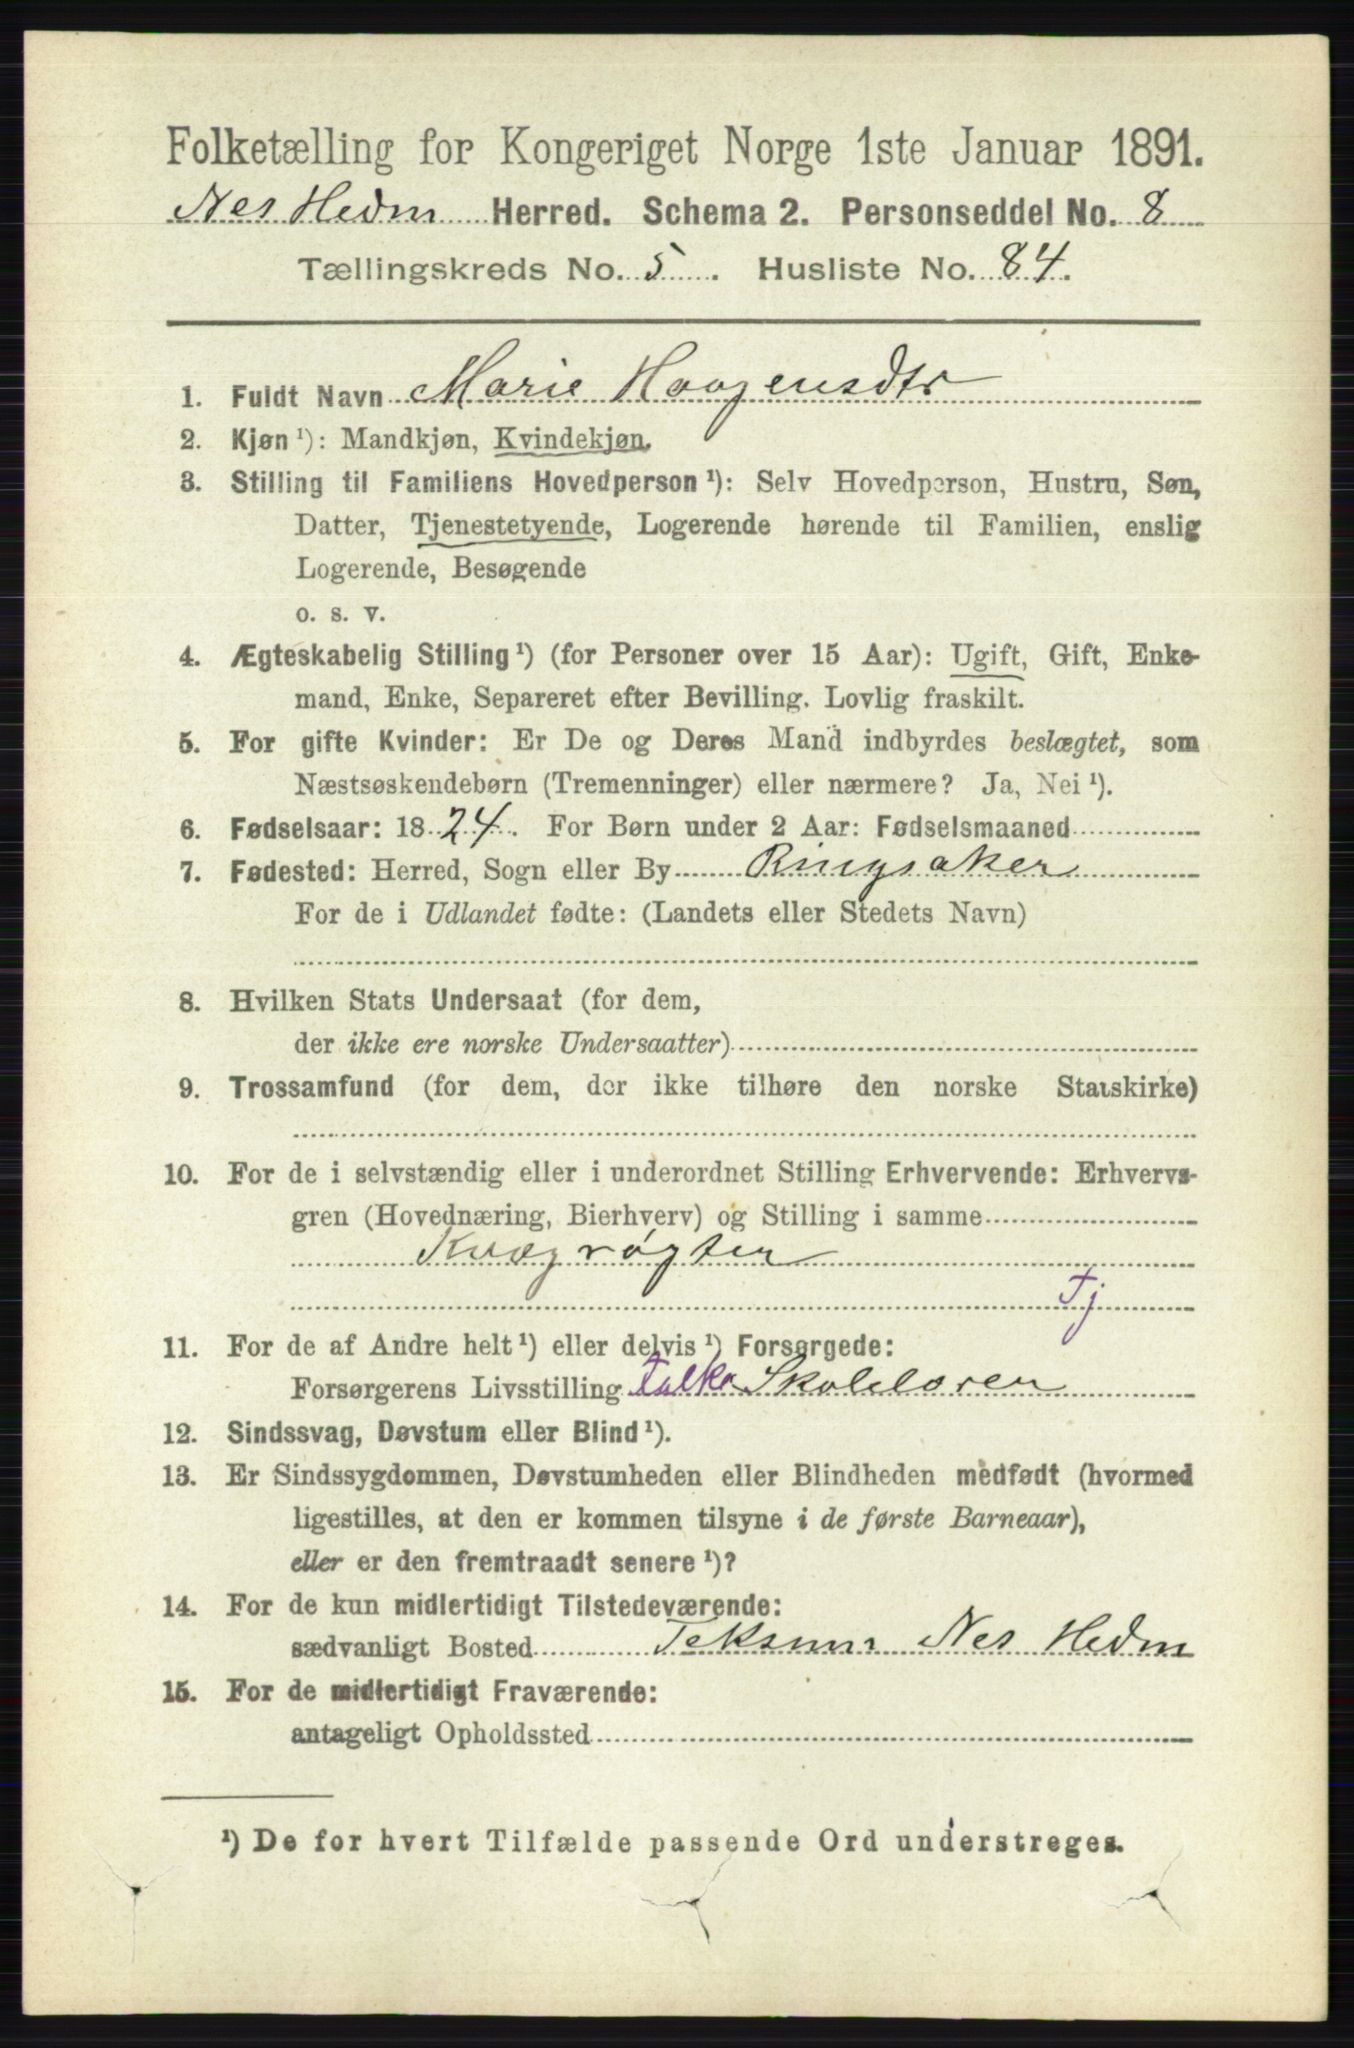 Folketælling for Kongeriget Norge 1ste Januar 1891.
Nes Hedm Herred. Schema 2. Personseddel No. 8
Tællingskreds No. 5. Husliste No. 84.
1. Fuldt Navn Marie Haagensdtr
2. Kjøn ¹): Mandkjøn, Kvindekjøn.
3. Stilling til Familiens Hovedperson ¹): Selv Hovedperson, Hustru, Søn,
Datter, Tjenestetyende, Logerende hørende til Familien, enslig
Logerende, Besøgende
o. s. v.
4. Ægteskabelig Stilling ¹) (for Personer over 15 Aar): Ugift, Gift, Enke-
mand, Enke, Separeret efter Bevilling. Lovlig fraskilt.
5. For gifte Kvinder: Er De og Deres Mand indbyrdes beslægtet, som
Næstsøskendebørn (Tremenninger) eller nærmere? Ja, Nei ¹).
6. Fødselsaar: 1824. For Børn under 2 Aar: Fødselsmaaned
7. Fødested: Herred, Sogn eller By Ringsaker
For de i Udlandet fødte: (Landets eller Stedets Navn)
8. Hvilken Stats Undersaat (for dem,
der ikke ere norske Undersaatter)
9. Trossamfund (for dem, der ikke tilhøre den norske Statskirke)
10. For de i selvstændig eller i underordnet Stilling Erhvervende: Erhvervs-
gren (Hovednæring, Bierhverv) og Stilling i samme
Kvægrøgter
Tj
11. For de af Andre helt ¹) eller delvis ¹) Forsørgede:
Forsørgerens Livsstilling Skolelæren
12. Sindssvag, Døvstum eller Blind ¹).
13. Er Sindssygdommen, Døvstumheden eller Blindheden medfødt (hvormed
ligestilles, at den er kommen tilsyne i de første Barneaar),
eller er den fremtraadt senere ¹)?
14. For de kun midlertidigt Tilstedeværende:
sædvanligt Bosted Teksum Nes Hedm
15. For de midlertidigt Fraværende:
antageligt Opholdssted
¹) De for hvert Tilfælde passende Ord understreges.